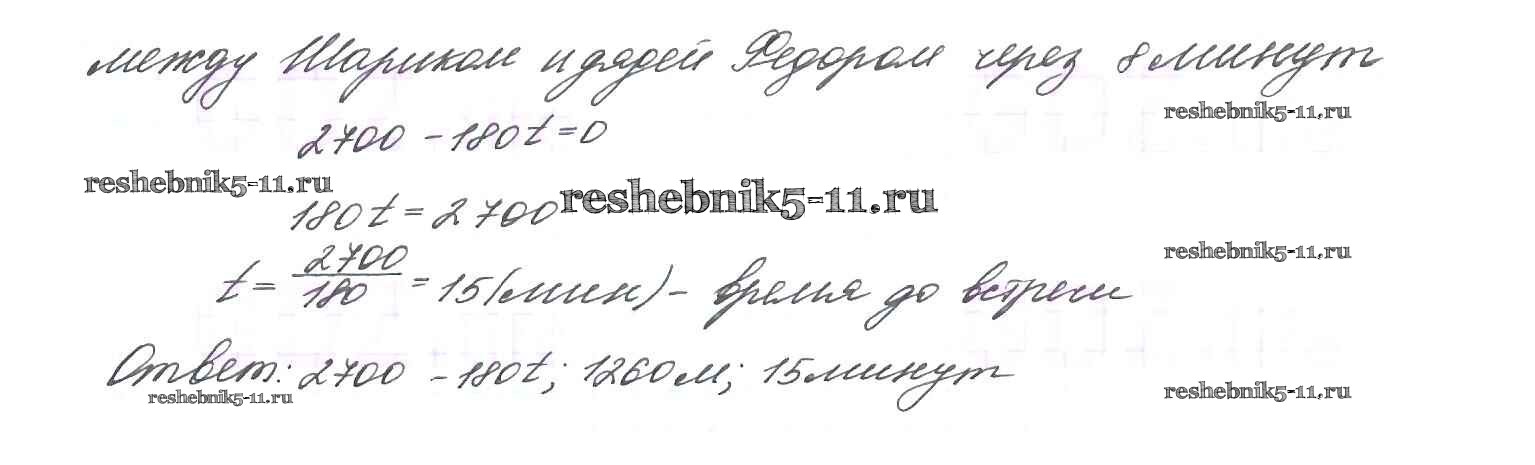 между Шариком и дядей Федором через 8 минут
reshebnik5-11.ru
2700 - 180t = 0
reshebnik5-11.ru
reshebnik5-11.ru
180t = 2700
reshebnik5-11.ru
t = 2700/180 = 15 (мин) - время до встречи
Ответ: 2700 - 180t; 1260 м; 15 минут
reshebnik5-11.ru
reshebnik5-11.ru